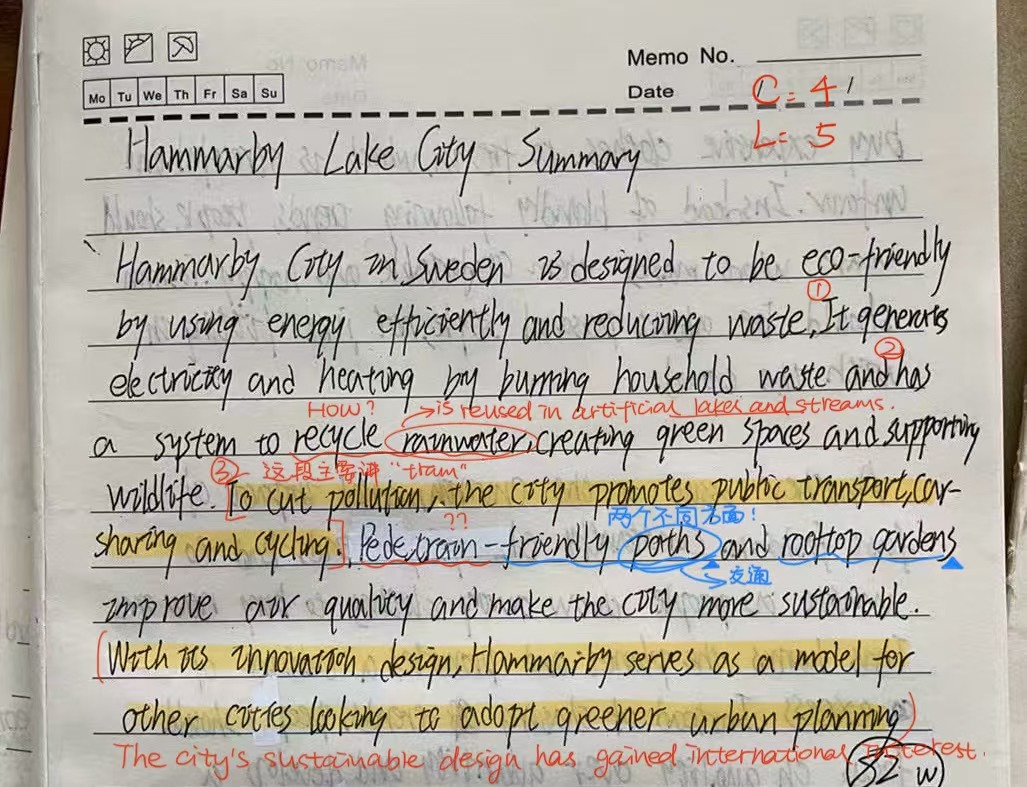 Memo No.
Mo Tu We Th Fr Sa Su
Date
C = 4
L = 5
Hammarby Lake City Summary
Hammarby City in Sweden is designed to be eco-friendly
①
by using energy efficiently and reducing waste. It generates
②
electricity and heating by burning household waste and has
HOW? → is reused in artificial lakes and streams.
a system to recycle rainwater, creating green spaces and supporting
③ 这段主要讲 "tram"
wildlife. To cut pollution, the city promotes public transport, car-
?? 两个不同方面!
sharing and cycling. Pedetrain-friendly paths and rooftop gardens
交通
improve air quality and make the city more sustainable.
With its innovation design, Hammarby serves as a model for
other cities looking to adopt greener urban planning
The city's sustainable design has gained international interest.
82 w